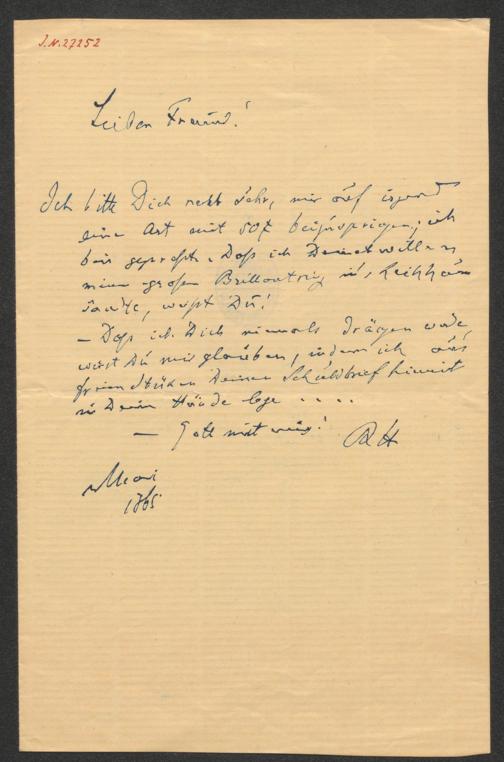 J.N. 27252
Lieber Freund!
Ich bitte Dich recht sehr, mir auf irgend
eine Art mit 50 beizuspringen; ich
bin gepreßt. Daß ich Deinetwillen
meinen großen Brillantring in's Leihhaus
sandte, weißt Du!
– Daß ich Dich niemals drängen werde,
wirst Du mir glauben, indem ich aus
freien Stücken Deinen Schuldbrief hiemit
in Deine Hände lege ....
– Gott mit uns!
Mai